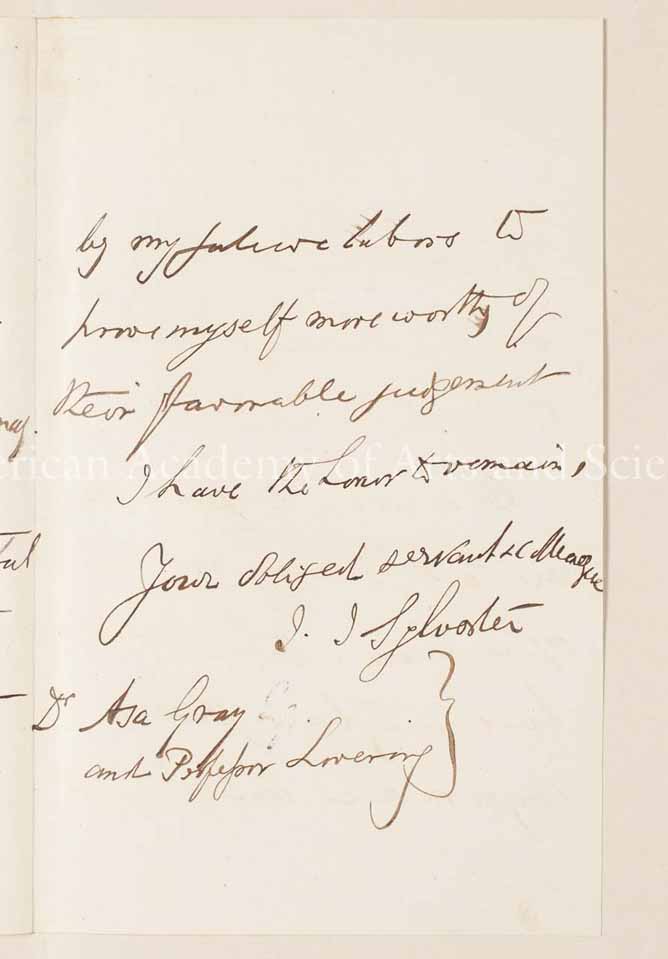 by my future labors to
prove myself more worthy of
their favorable judgement
I have the honor to remain,
Your obliged servant & colleague
J. J Sylvester
Dr Asa Gray
and Professor Lovering
erican Academy of Arts and Scie